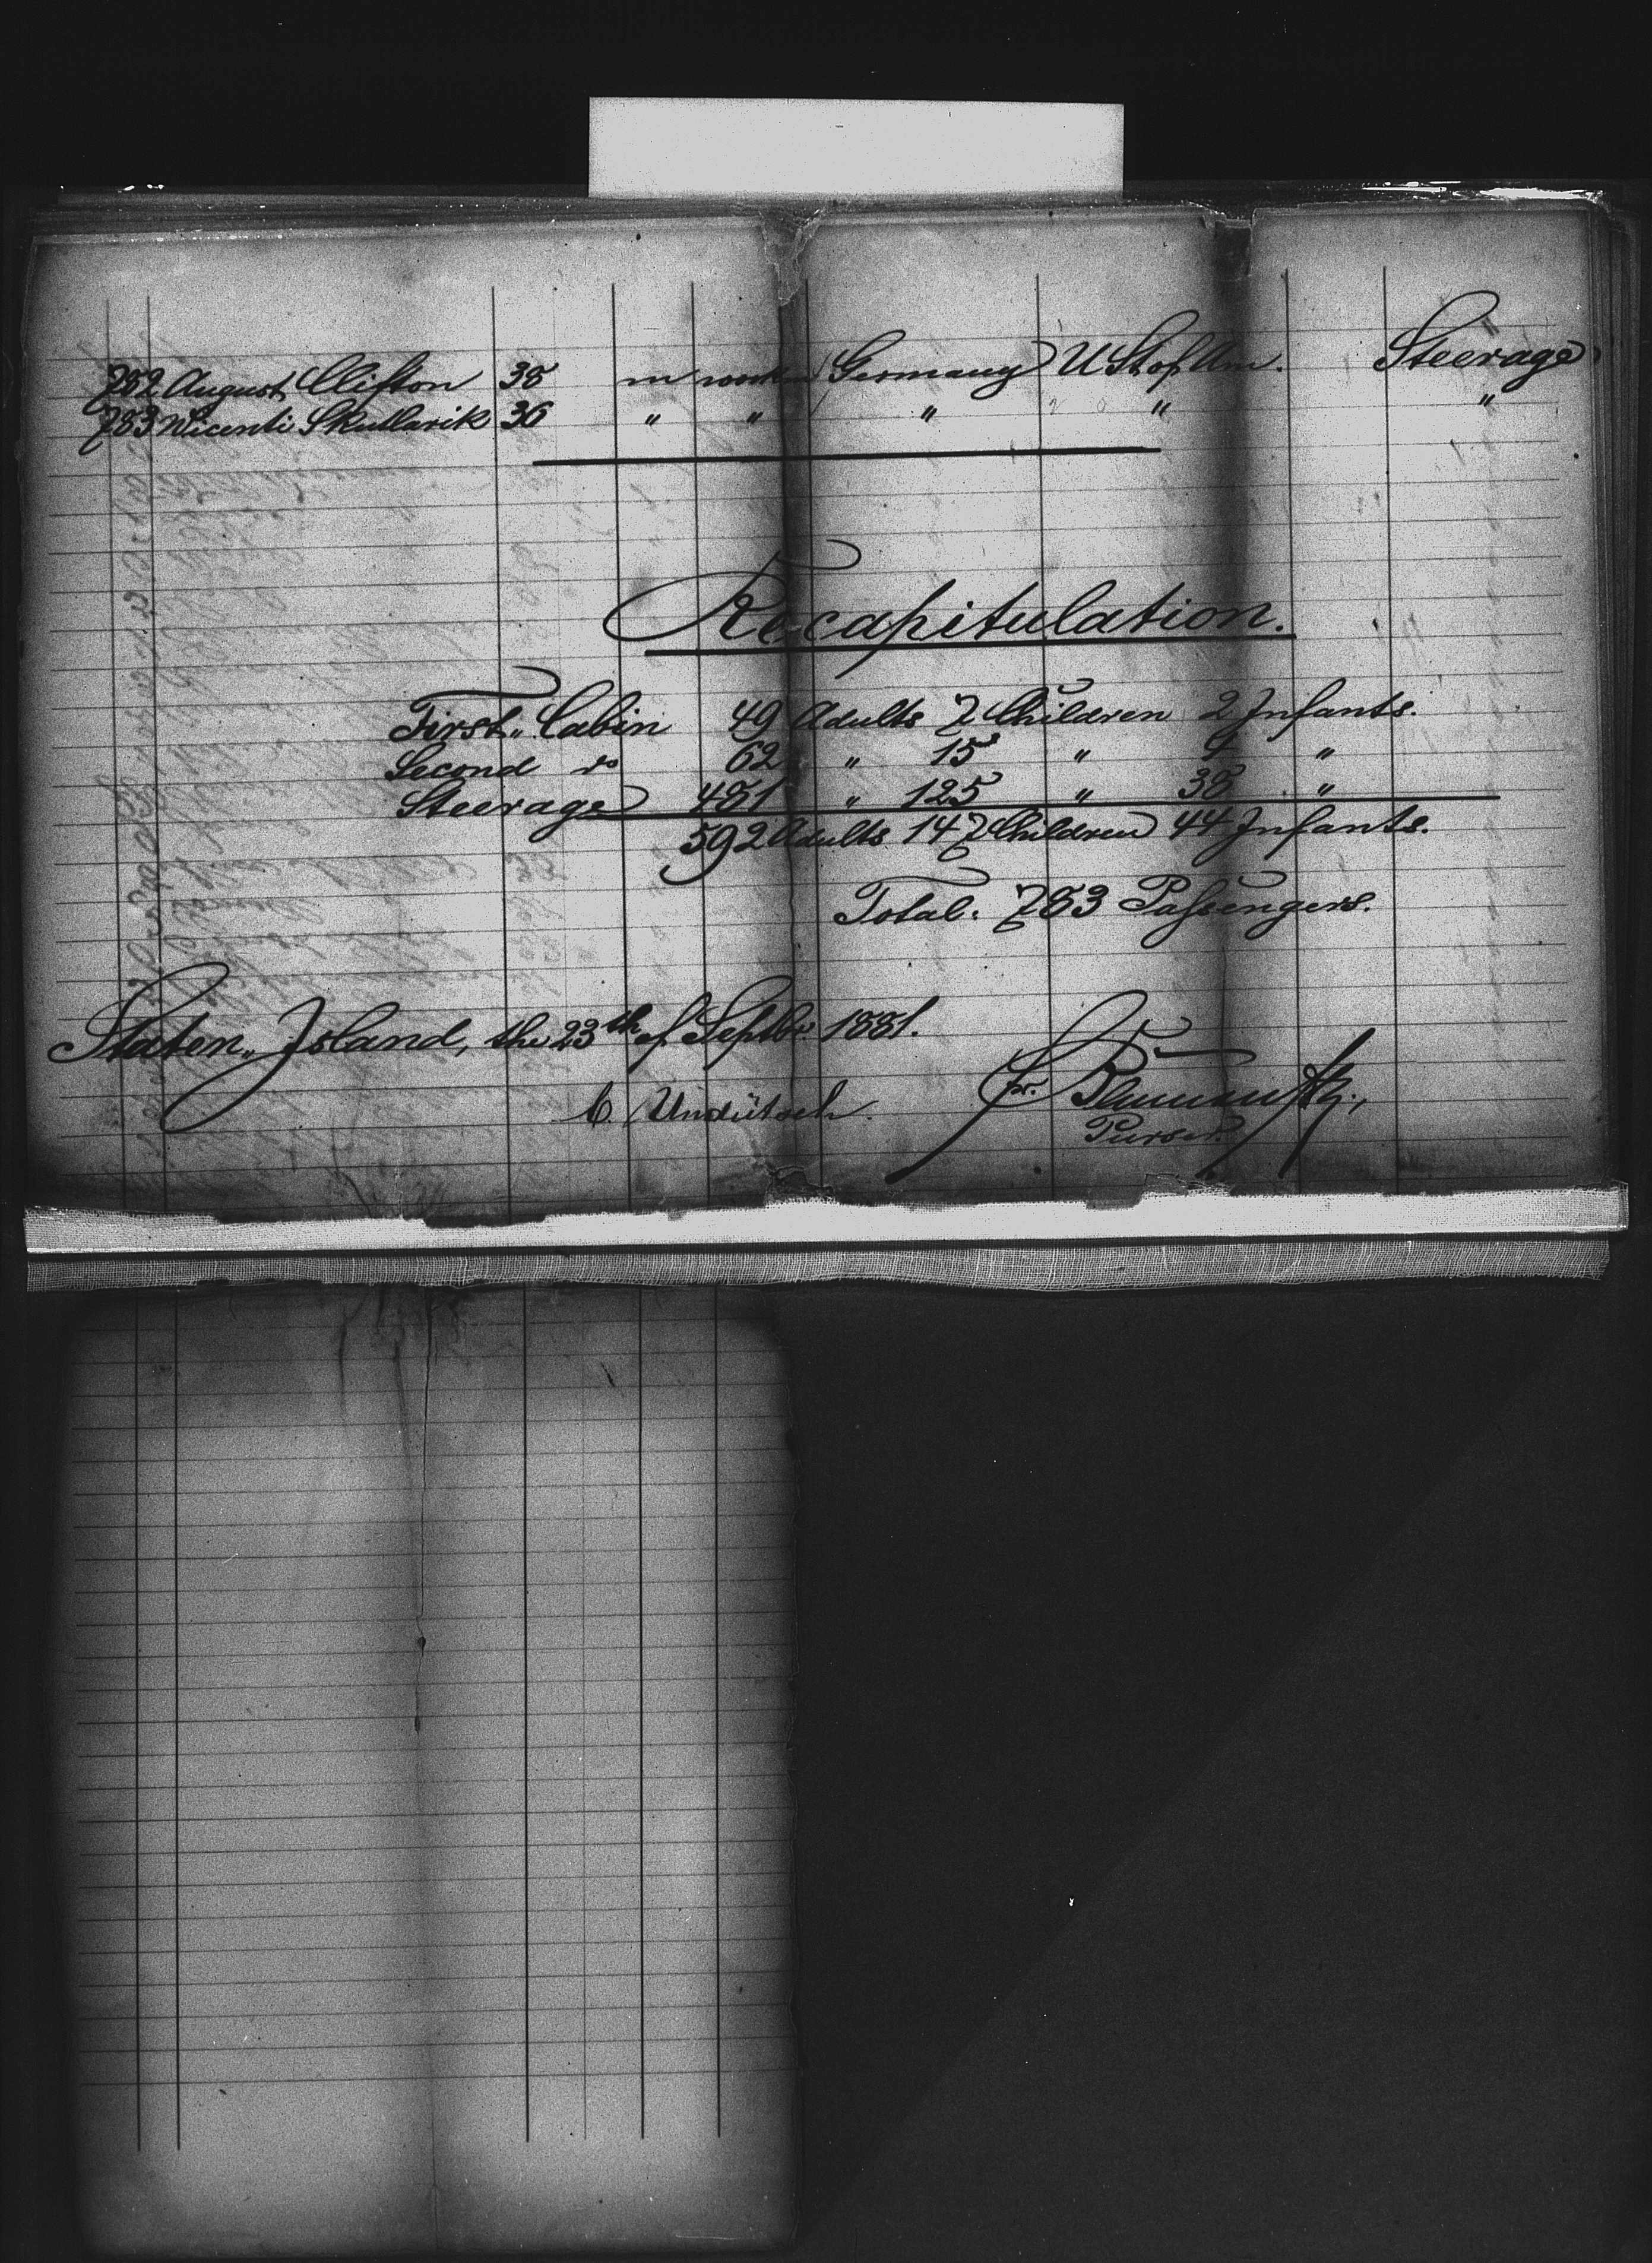 782 August Clifton 38 m workm Germany U St of Am. Steerage
783 Wicenti Skutlarik 36 " " " " "
Recapitulation.
First" Cabin 49 Adults 7 Children 2 Infants.
Second do 62 " 15 " 4 "
Steerage 481 " 125 " 38 "
592 Adults 147 Children 44 Infants.
Total: 783 Passengers.
Staten" Island, the 23th of Septbr. 1881.
C. Undütsch.
Purser.